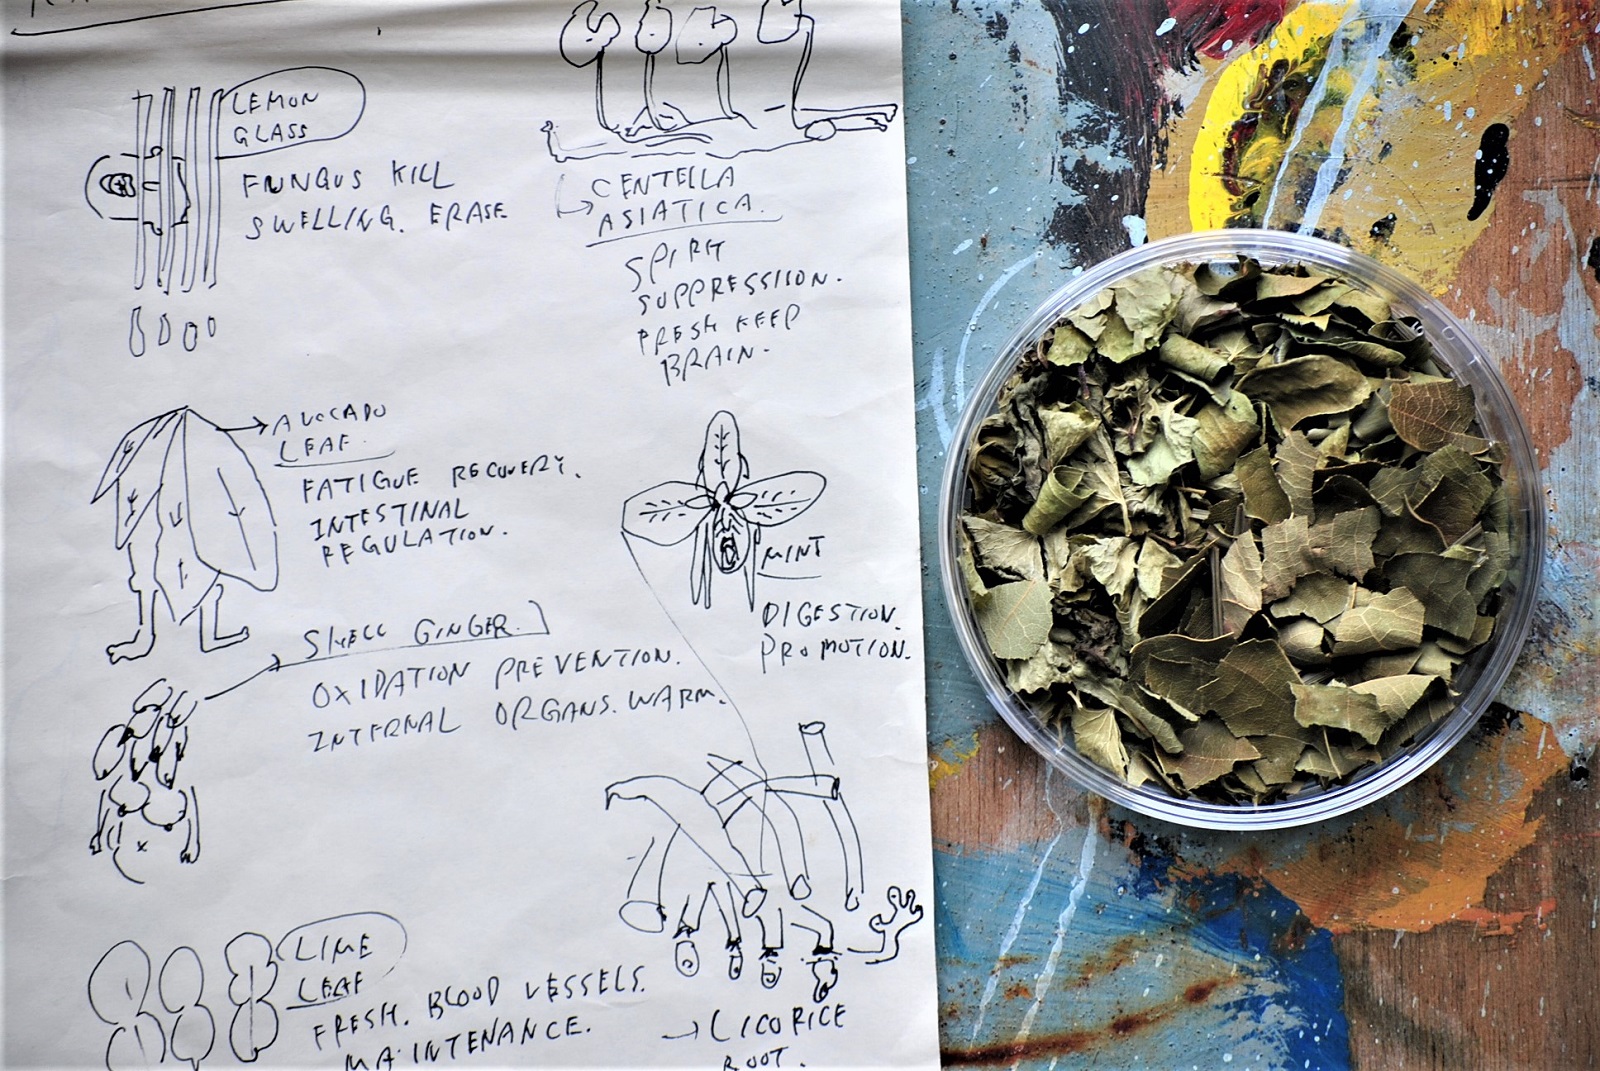 LEMON
GLASS
FUNGUS KILL
SWELLING. ERASE
CENTELLA
ASIATICA.
SPIRIT
SUPPRESSIION.
FRESH KEEP
BRAIN.
AVOCADO
LEAF.
FATIGUE RECOVERY.
INTESTINAL
REGULATION.
MINT
DIGESTION.
PROMOTION.
SHELL GINGER.
OXIDATION PREVENTION.
INTERNAL ORGANS. WARM.
LIME
LEAF
FRESH. BLOOD VESSELS.
MAINTENANCE.
LICORICE
ROOT.